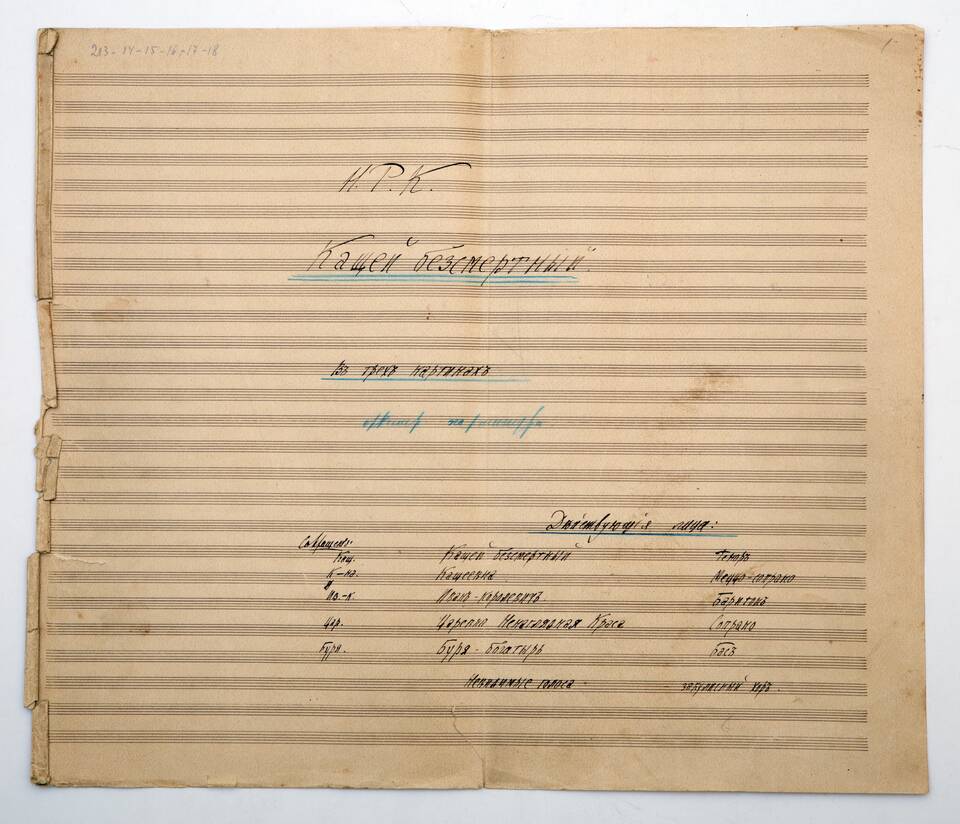 213-14-15-16-17-18
1
Н. Р. К.
Кащей безсмертный.
Въ трехъ картинахъ
Дѣйствующія лица:
Сокращенъ:
Кащ. Кащей безсмертный Теноръ
К-на. Кащеевна Меццо-сопрано
Ив.-к. Иванъ-королевичъ Баритонъ
Цар. Царевна Ненаглядная Краса Сопрано
Буря. Буря-богатырь Басъ
Невидимые голоса закулисный хоръ.